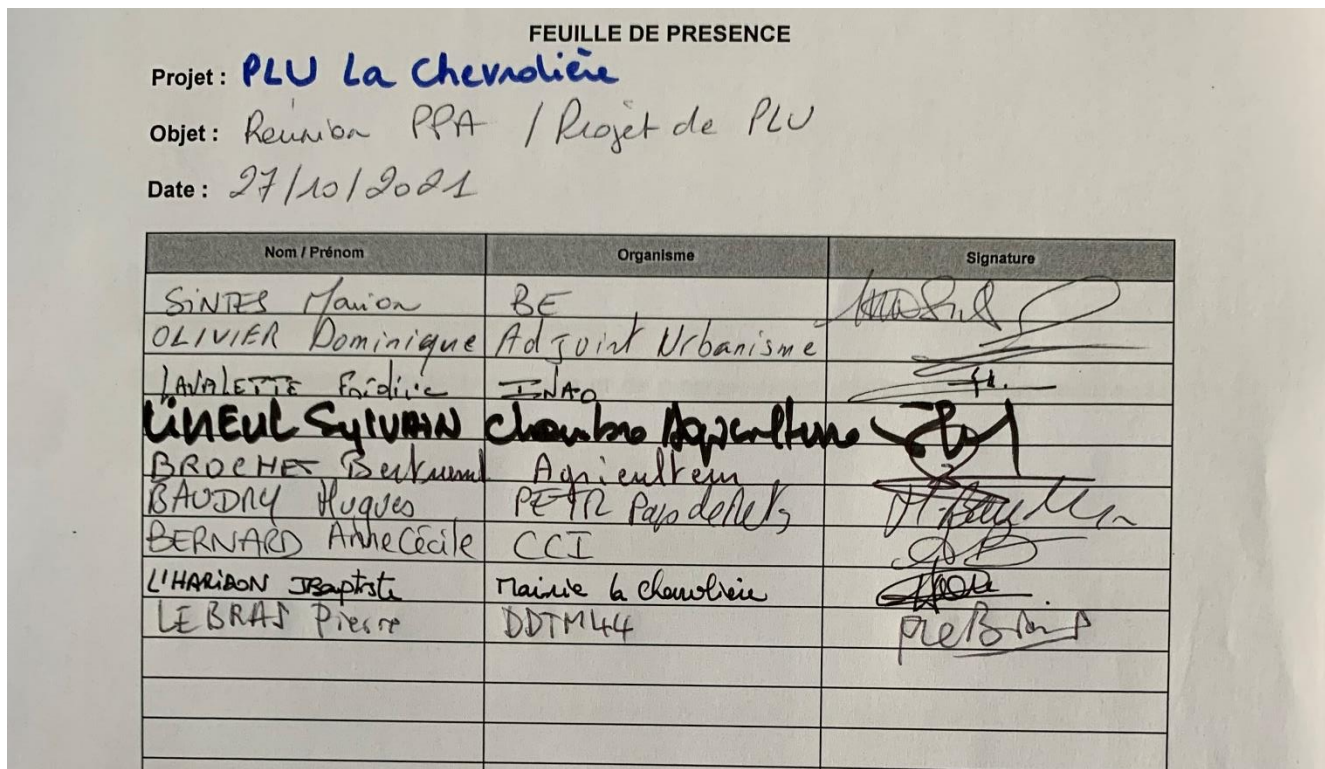 FEUILLE DE PRESENCE
Projet : PLU La Chevrolière
Objet : Réunion PPA / Projet de PLU
Date : 27/10/2021
Nom / Prénom Organisme Signature
SINTES Marion BE
OLIVIER Dominique Adjoint Urbanisme
LAVALETTE Frédéric INAO
LINEUL SYLVAIN Chambre Agriculture
BROCHET Bertrand Agriculteur
BAUDRY Hugues PETR Pays de Retz
BERNARD Anne Cécile CCI
L'HARIDON JBaptiste Mairie la Chevrolière
LE BRAS Pierre DDTM44